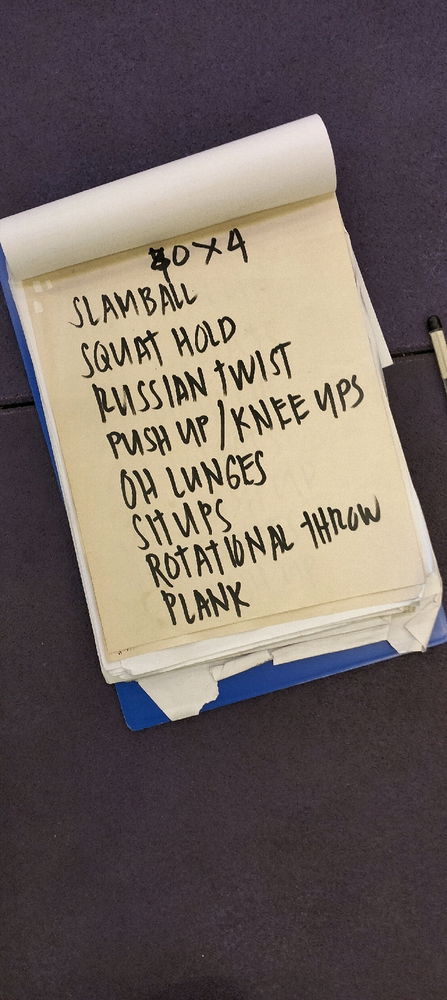 0 X 4
SLAMBALL
SQUAT HOLD
RUSSIAN TWIST
PUSH UP / KNEE UPS
OH LUNGES
SIT UPS
ROTATIONAL THROW
PLANK